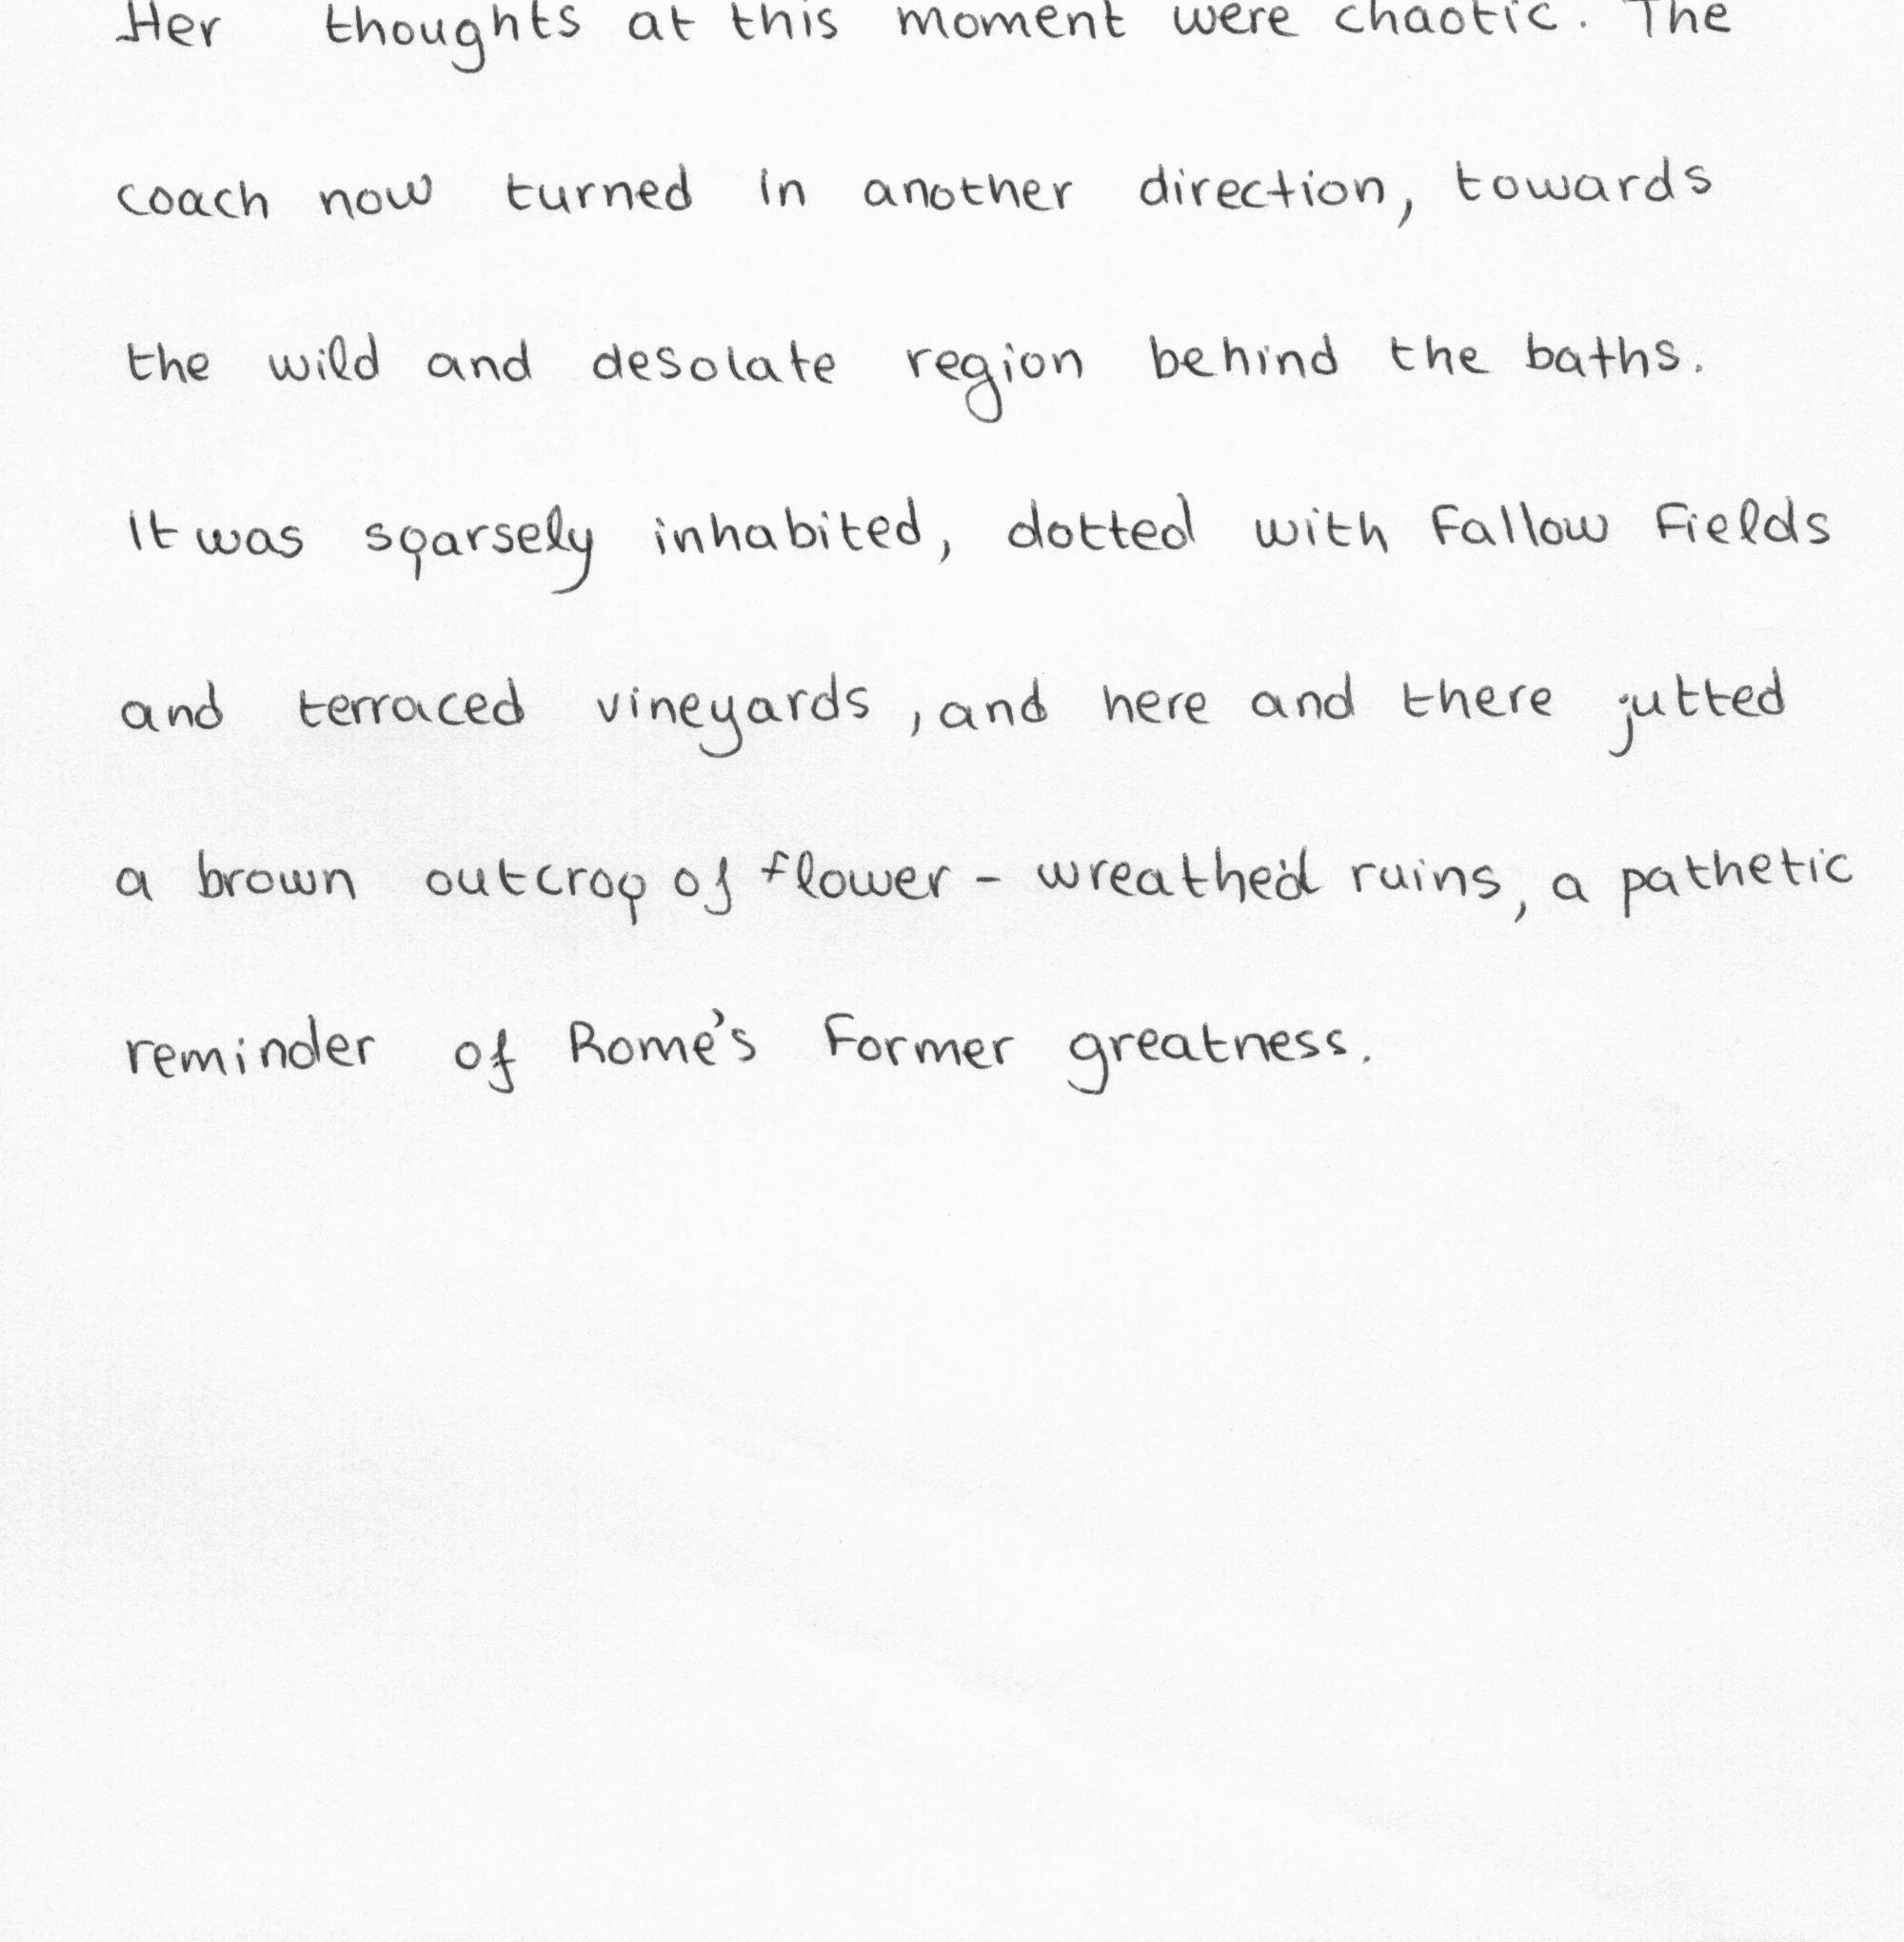 Her thoughts at this moment were chaotic. The
coach now turned in another direction, towards
the wild and desolate region behind the baths.
It was sparsely inhabited, dotted with fallow fields
and terraced vineyards, and here and there jutted
a brown outcrop of flower-wreathed ruins, a pathetic
reminder of Rome's former greatness.